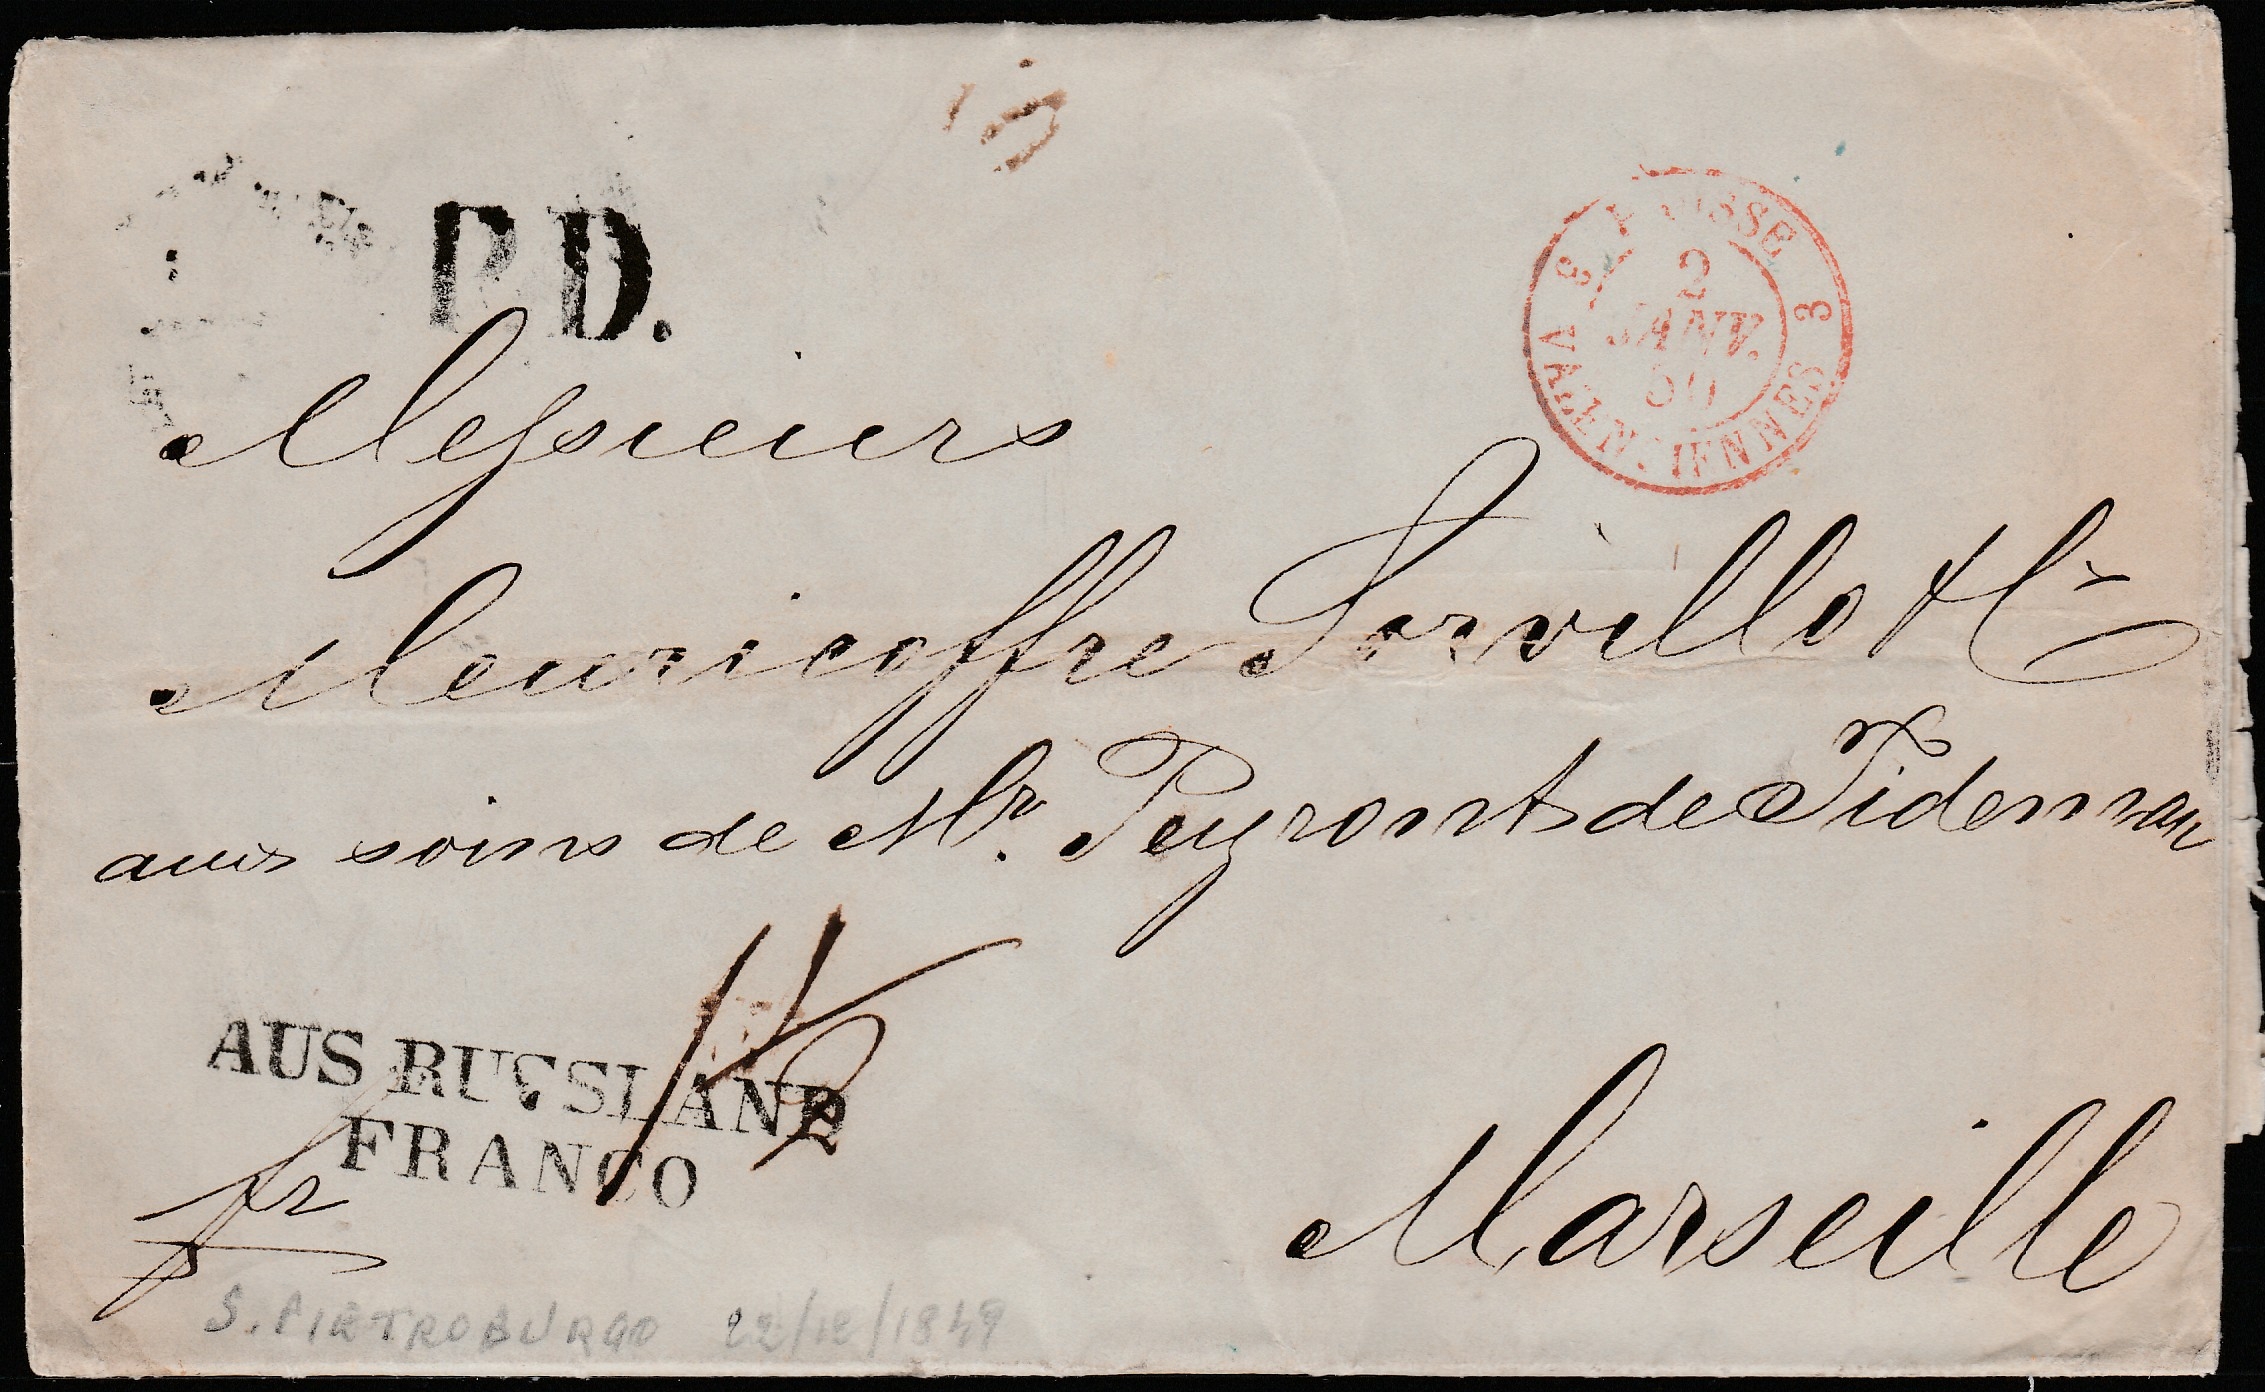 P.D.
PRUSSE
3 VALENCIENNES 3
2
JANV.
50
Messieurs
Meuricoffre Sorvillo & Co
aux soins de Mr. Peyront de Tideman
AUS RUSSLAND
FRANCO
fr
Marseille
S. PIETROBURGO 22/12/1849